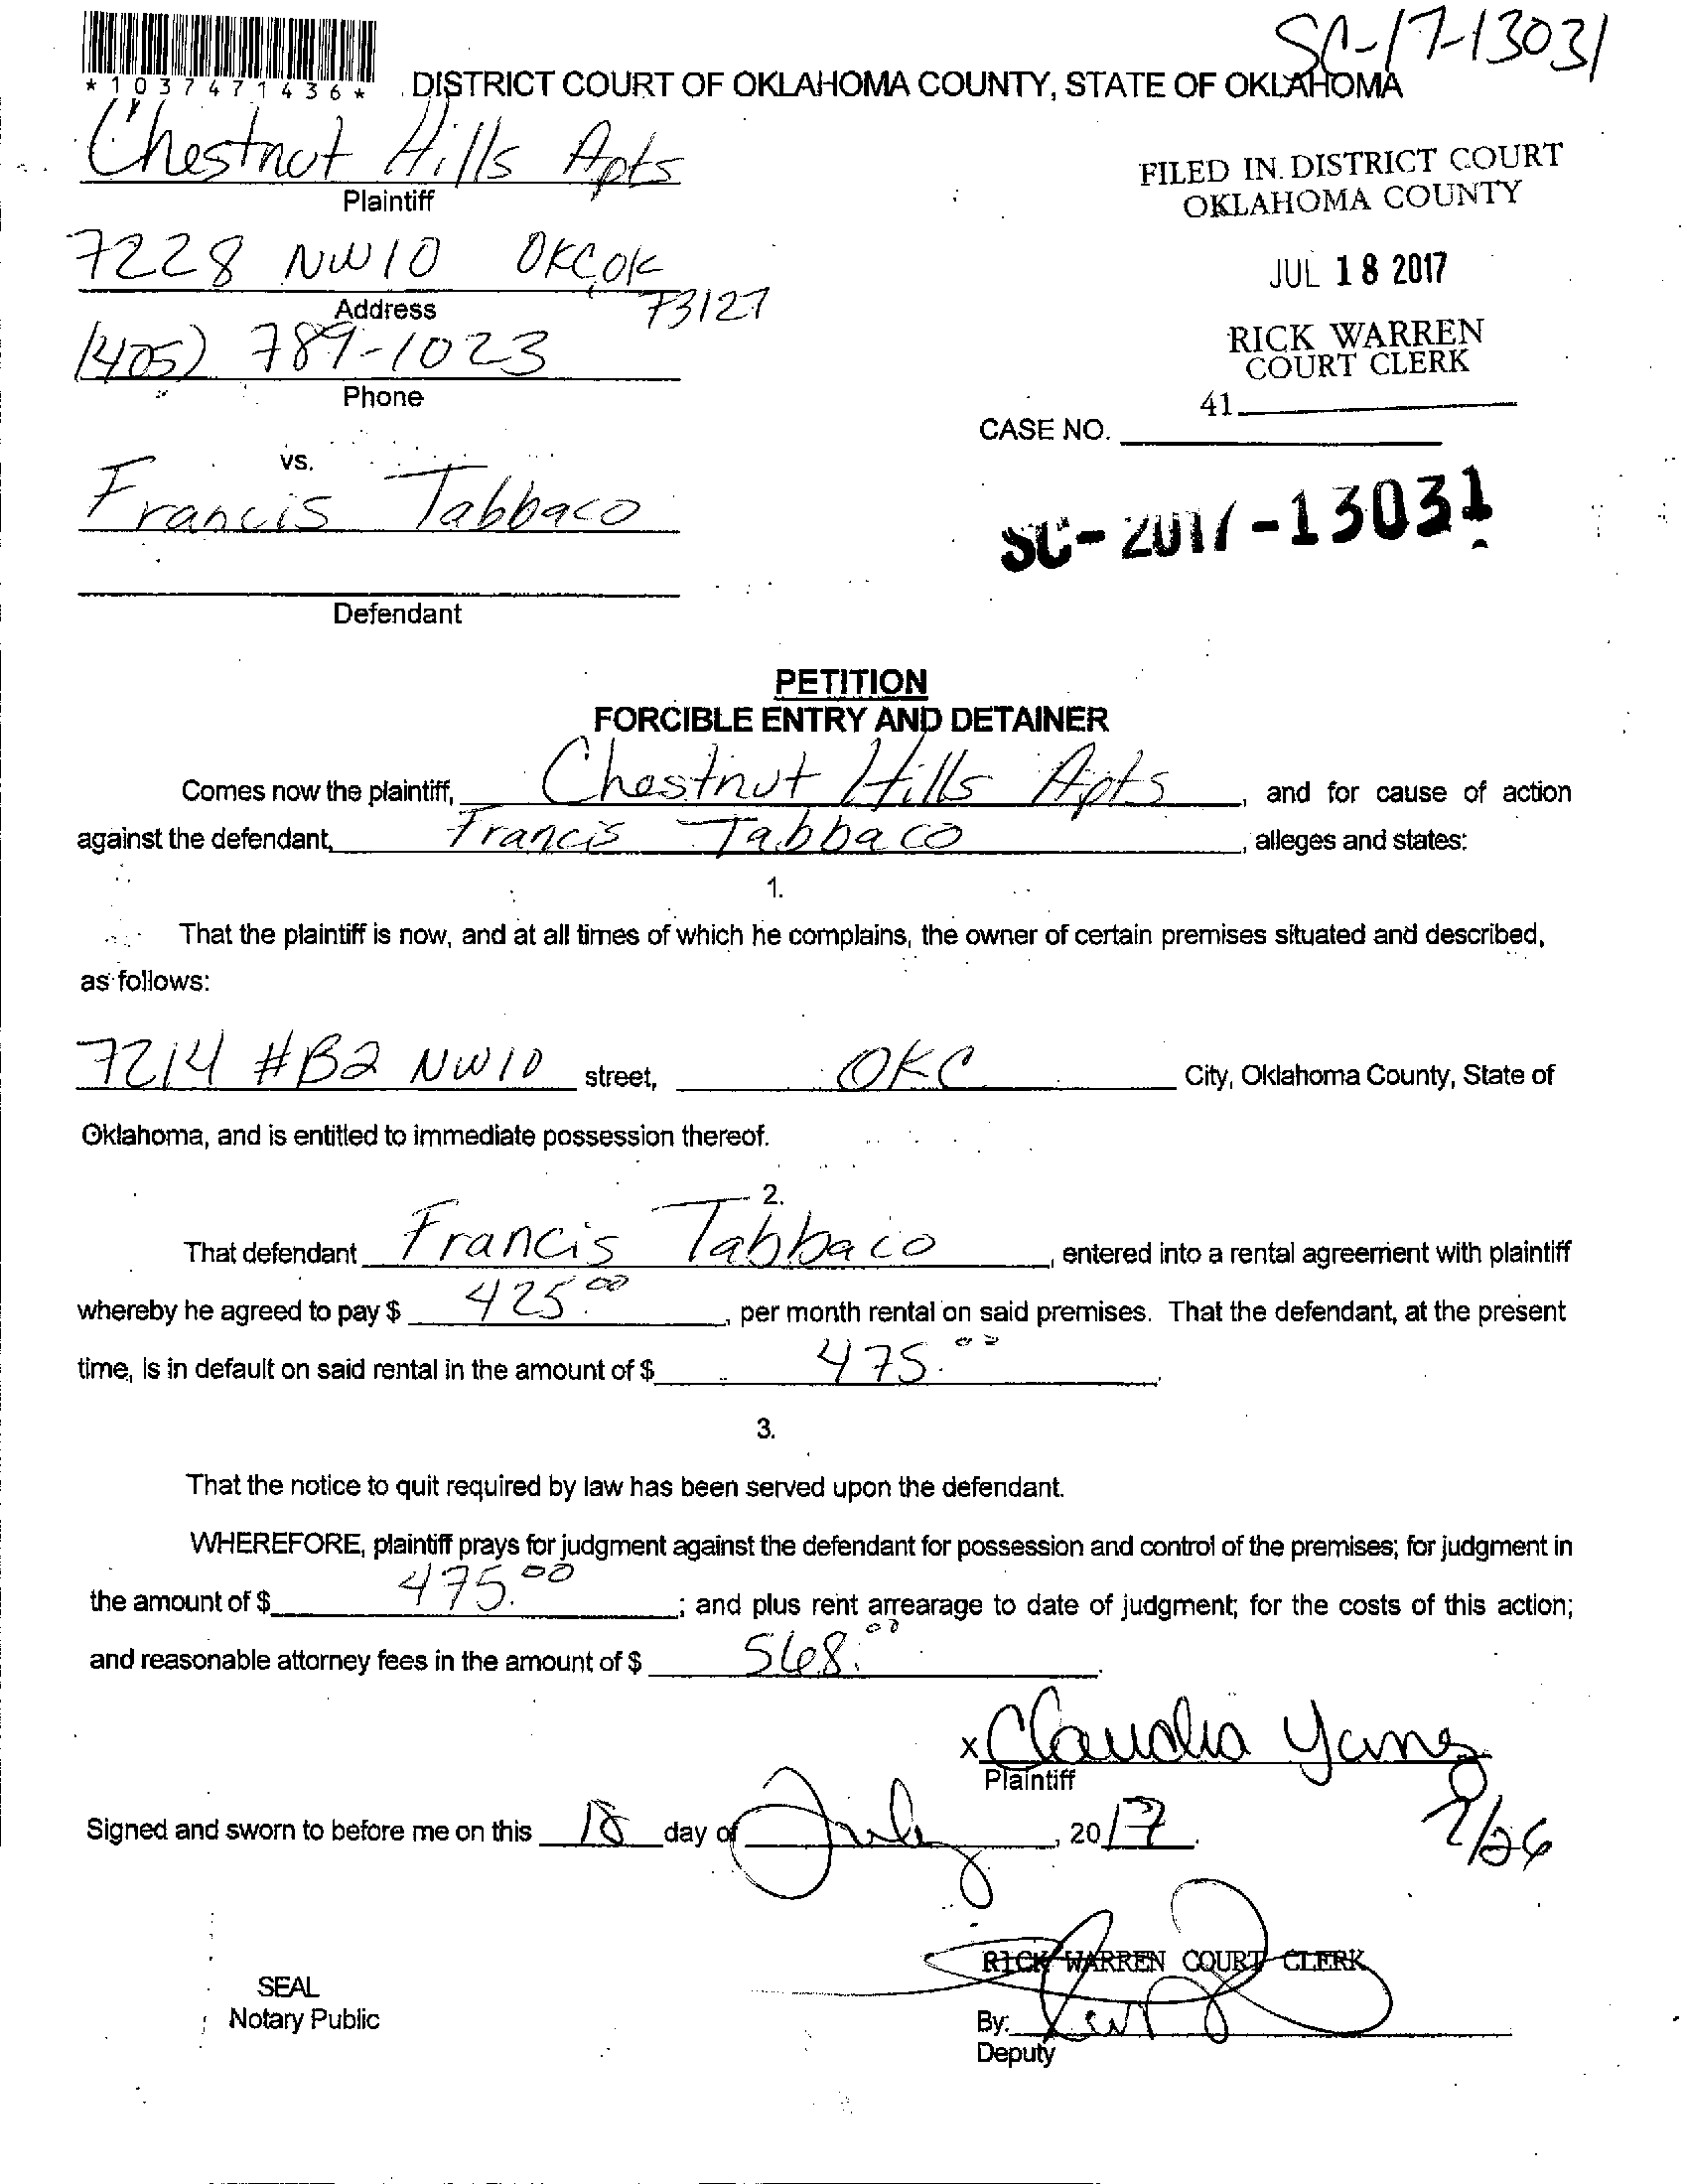 SC-17-13031
*1037471436*
DISTRICT COURT OF OKLAHOMA COUNTY, STATE OF OKLAHOMA
Chestnut Hills Apts
Plaintiff
FILED IN DISTRICT COURT
OKLAHOMA COUNTY
7228 NW10 OKC OK
73127
Address
JUL 18 2017
(405) 789-1023
Phone
RICK WARREN
COURT CLERK
41
CASE NO.
vs.
Francis Tabbaco
SC-2017-13031
Defendant
PETITION
FORCIBLE ENTRY AND DETAINER
Comes now the plaintiff, Chestnut Hills Apts, and for cause of action
against the defendant, Francis Tabbaco, alleges and states:
1.
That the plaintiff is now, and at all times of which he complains, the owner of certain premises situated and described,
as follows:
7214 #B2 NW10 street, OKC City, Oklahoma County, State of
Oklahoma, and is entitled to immediate possession thereof.
2.
That defendant Francis Tabbaco, entered into a rental agreement with plaintiff
whereby he agreed to pay $ 425.00, per month rental on said premises. That the defendant, at the present
time, is in default on said rental in the amount of $ 475.00.
3.
That the notice to quit required by law has been served upon the defendant.
WHEREFORE, plaintiff prays for judgment against the defendant for possession and control of the premises; for judgment in
the amount of $ 475.00; and plus rent arrearage to date of judgment; for the costs of this action;
and reasonable attorney fees in the amount of $ 568.00.
x Claudia Yanez
Plaintiff
Signed and sworn to before me on this 18 day of July, 2017.
RICK WARREN COURT CLERK
SEAL
Notary Public
By:
Deputy